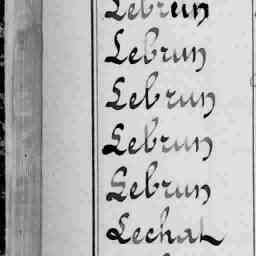 Lebrun
Lebrun
Lebrun
Lebrun
Lebrun
Lechat